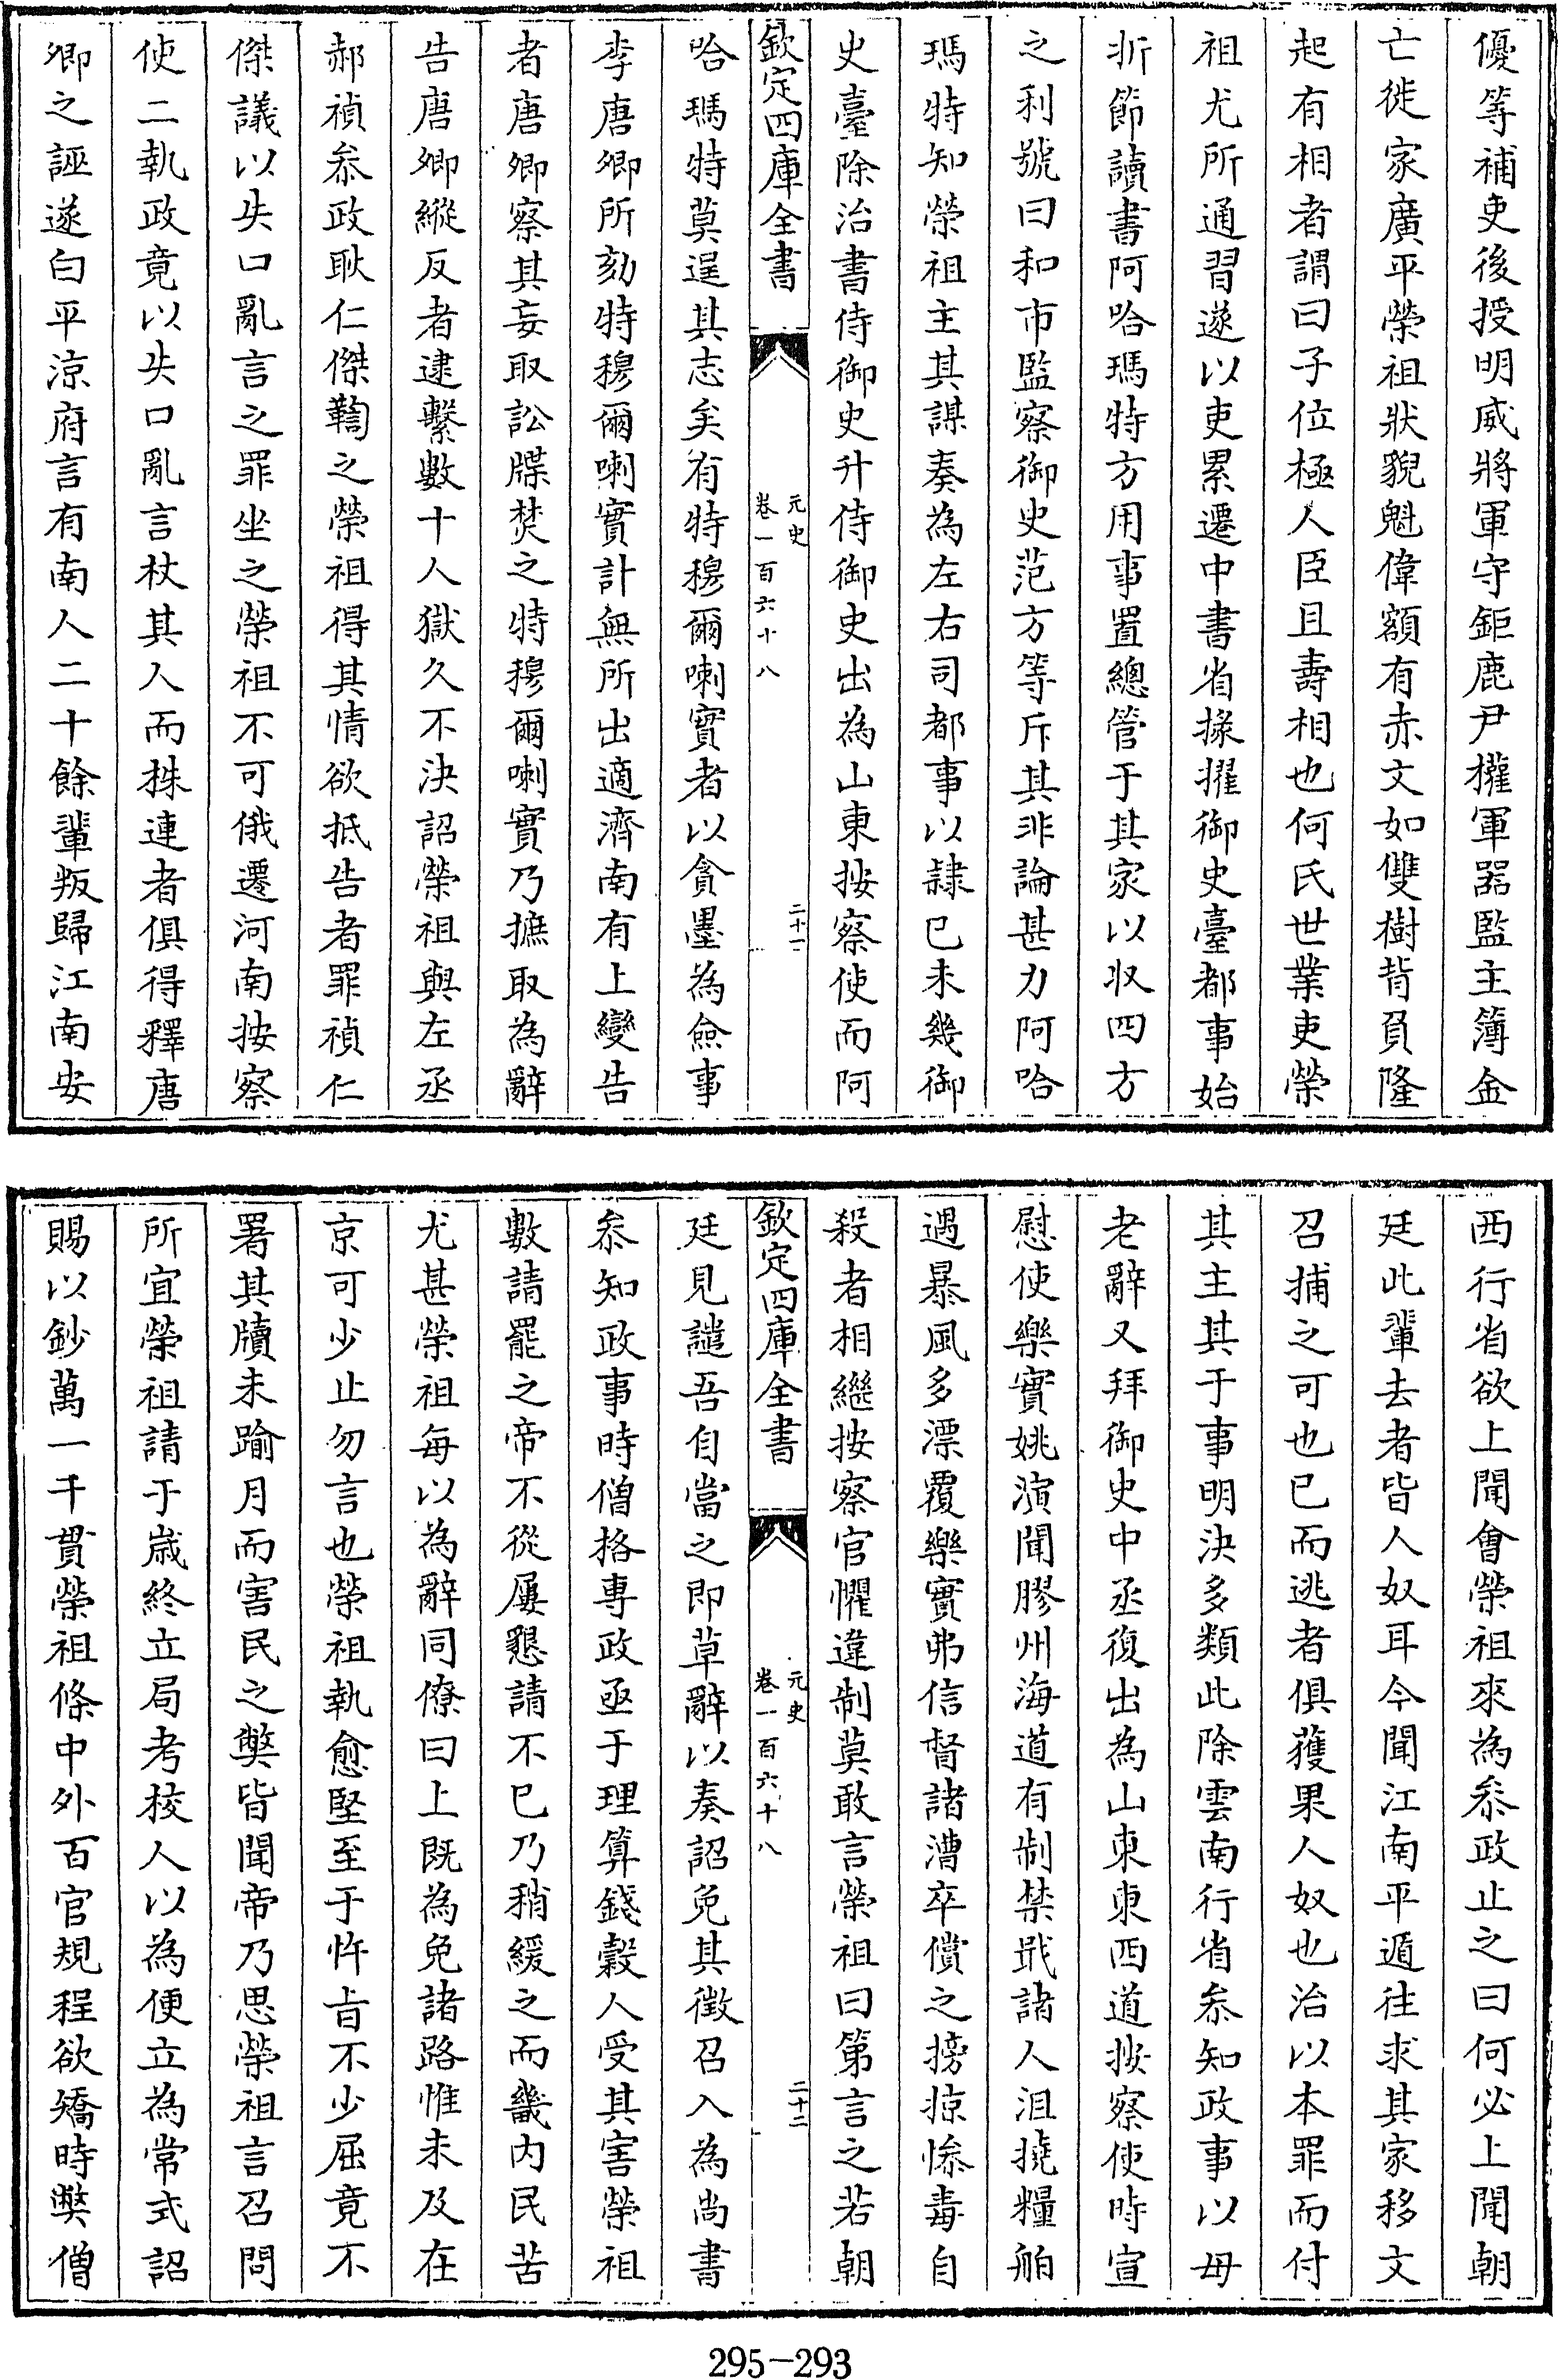 優等補吏後授明威將軍守鉅鹿尹權軍器監主簿金
亡徙家廣平榮祖狀貌魁偉額有赤文如雙樹背負隆
起有相者謂曰子位極人臣且壽相也何氏世業吏榮
祖尤所通習遂以吏累遷中書省掾擢御史臺都事始
折節讀書阿哈瑪特方用事置總管于其家以收四方
之利號曰和市監察御史范方等斥其非論甚力阿哈
瑪特知榮祖主其謀奏為左右司都事以隷已未幾御
史臺除治書侍御史升侍御史出為山東按察使而阿
欽定四庫全書
元史
卷一百六十八
二十一
哈瑪特莫逞其志矣有特穆爾喇實者以貪墨為僉事
李唐卿所劾特穆爾喇實計無所出適濟南有上變告
者唐卿察其妄取訟牒焚之特穆爾喇實乃摭取為辭
告唐卿縱反者逮繫數十人獄久不決詔榮祖與左丞
郝禎叅政耿仁傑鞫之榮祖得其情欲抵告者罪禎仁
傑議以失口亂言之罪坐之榮祖不可俄遷河南按察
使二執政竟以失口亂言杖其人而株連者俱得釋唐
卿之誣遂白平涼府言有南人二十餘輩叛歸江南安
西行省欲上聞會榮祖來為叅政止之曰何必上聞朝
廷此輩去者皆人奴耳今聞江南平遁往求其家移文
召捕之可也已而逃者俱獲果人奴也治以本罪而付
其主其于事明決多類此除雲南行省叅知政事以母
老辭又拜御史中丞復出為山東東西道按察使時宣
慰使樂實姚演聞膠州海道有制禁戢諸人沮撓糧舶
遇暴風多漂覆樂實弗信督諸漕卒償之搒掠慘毒自
殺者相繼按察官懼違制莫敢言榮祖曰第言之若朝
欽定四庫全書
元史
卷一百六十八
二十二
廷見譴吾自當之即草辭以奏詔免其徵召入為尚書
叅知政事時僧格専政亟于理算錢穀人受其害榮祖
數請罷之帝不從屢懇請不已乃稍緩之而畿内民苦
尤甚榮祖每以為辭同僚曰上既為免諸路惟未及在
京可少止勿言也榮祖執愈堅至于忤㫖不少屈竟不
署其牘未踰月而害民之獘皆聞帝乃思榮祖言召問
所宜榮祖請于歳終立局考校人以為便立為常式詔
賜以鈔萬一千貫榮祖條中外百官規程欲矯時獘僧
295-293